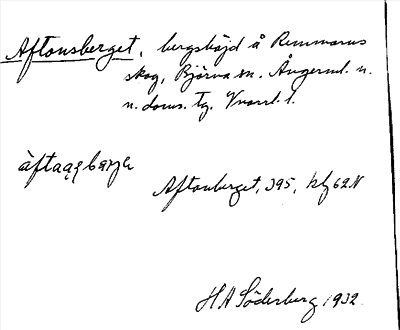 Aftonsberget, bergshöjd å Remmarns
skog, Björna sn. Ångerml. n.
n. doms. tg. Vnorrl. l.
Aftonberget, 395, hbg 62N
H A Söderberg 1932.